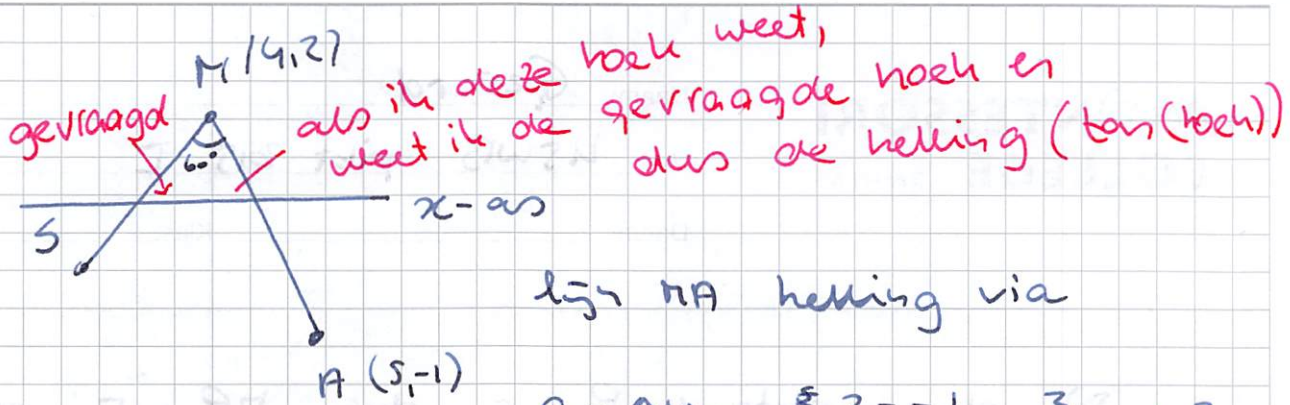 M (4,2)
gevraagd
als ik deze hoek weet,
weet ik de gevraagde hoek en
dus de helling (tan(hoek))
60°
x-as
S
lijn MA helling via
A (5,-1)